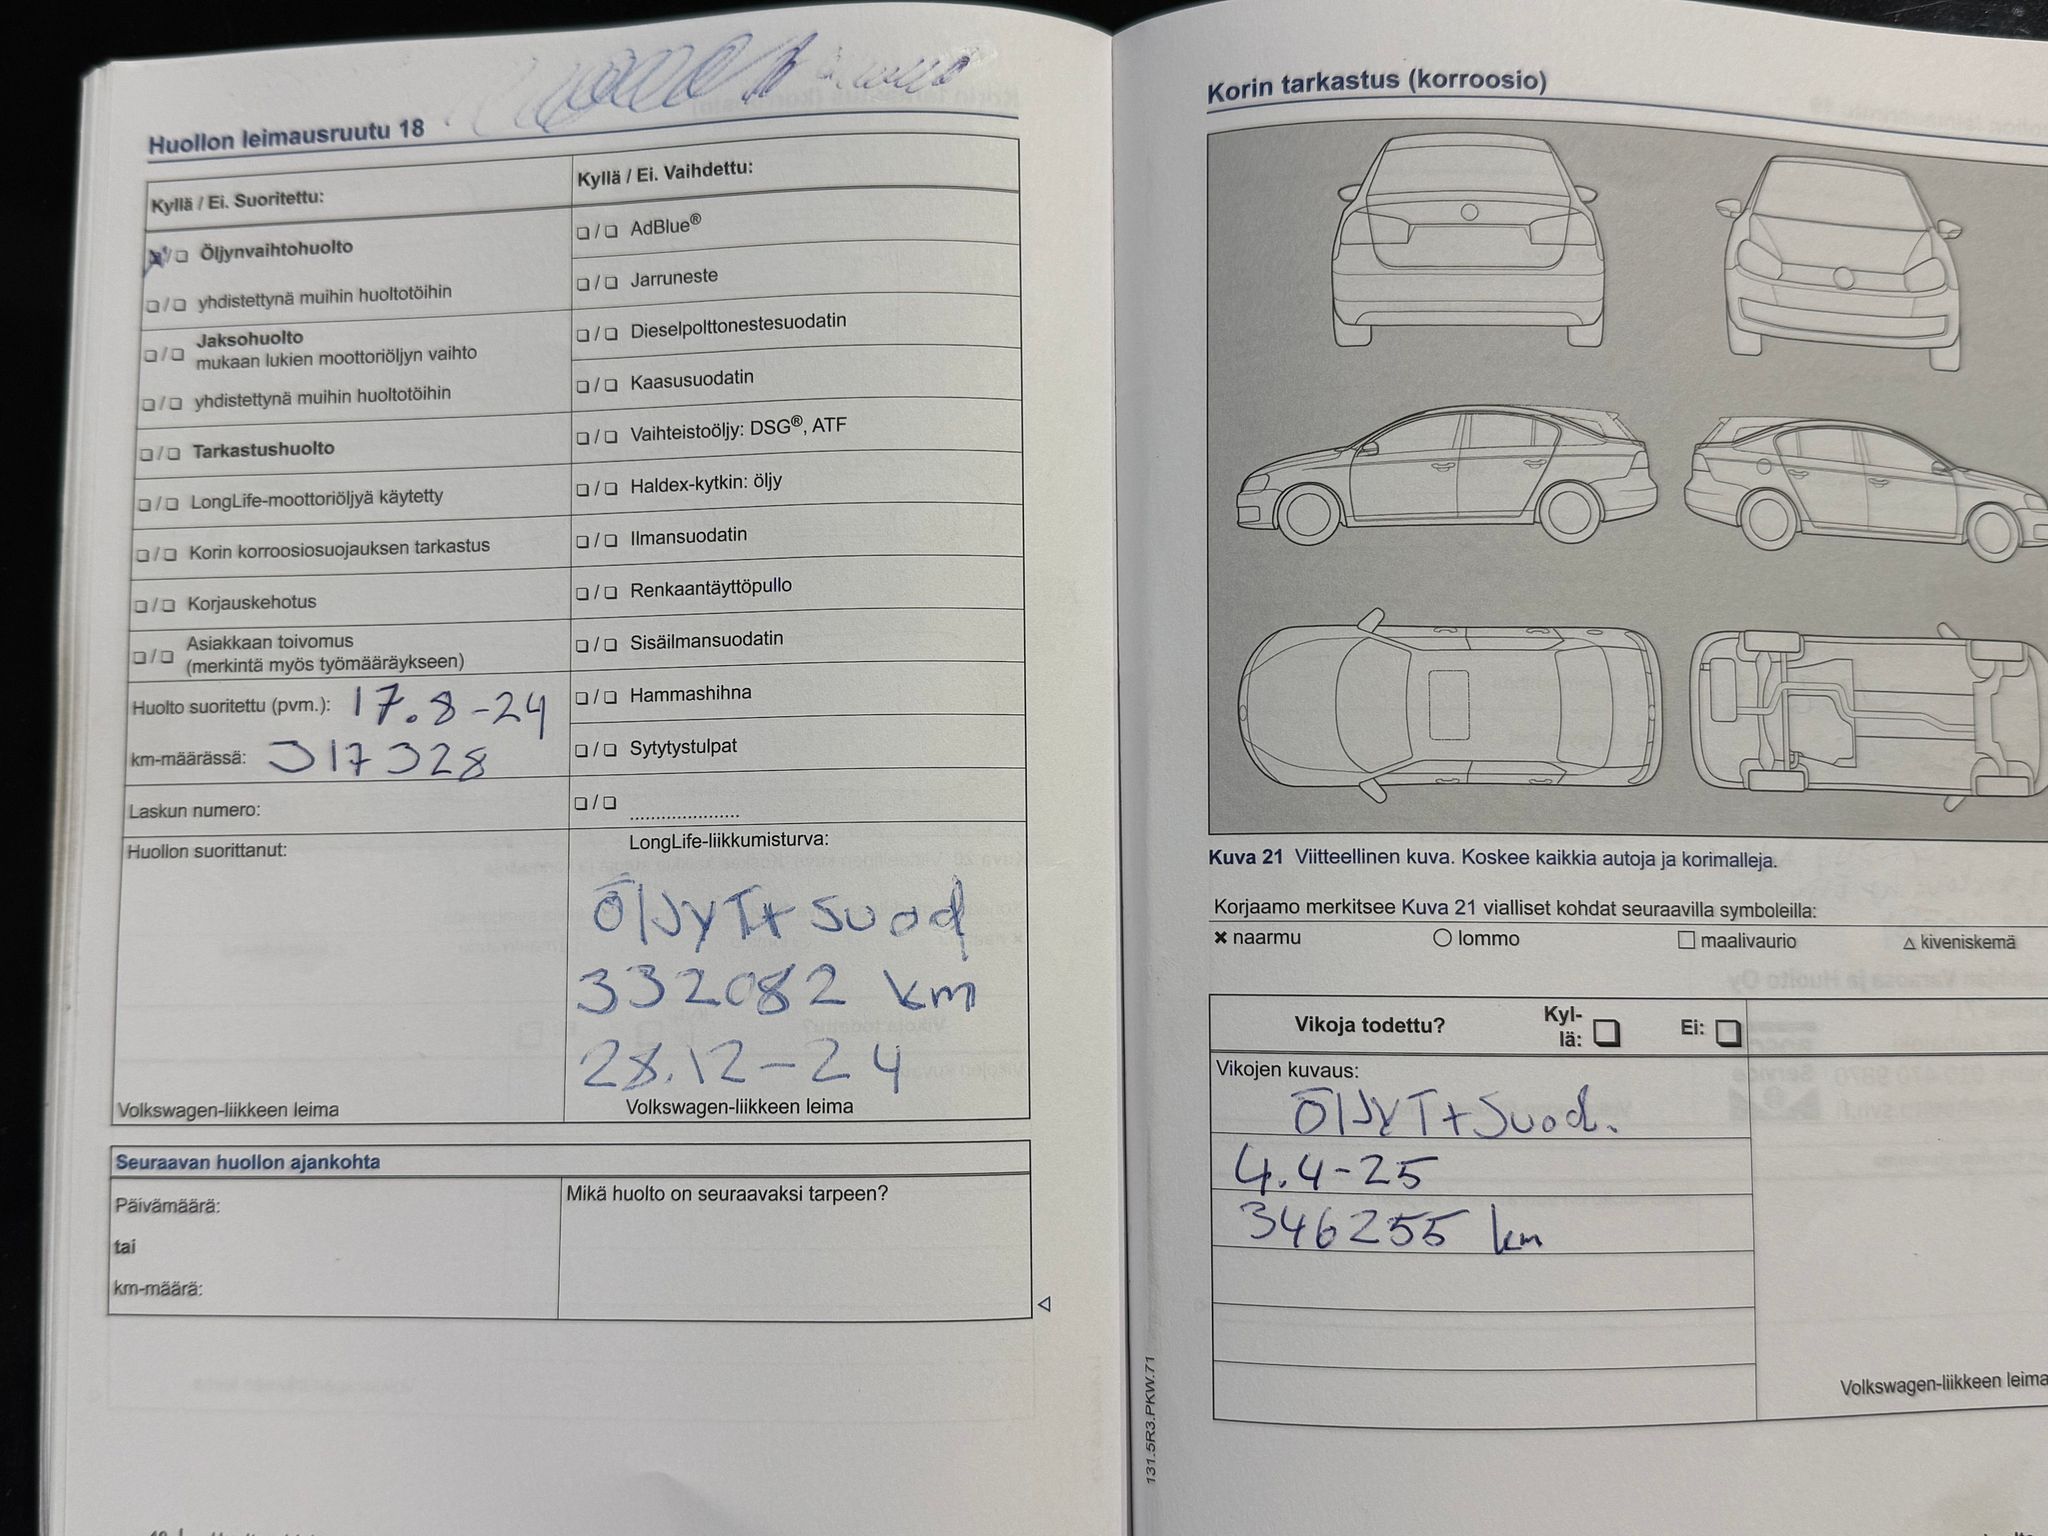 Huollon leimausruutu 18
Kyllä / Ei. Suoritettu:
Öljynvaihtohuolto
yhdistettynä muihin huoltotöihin
Jaksohuolto
mukaan lukien moottoriöljyn vaihto
yhdistettynä muihin huoltotöihin
Tarkastushuolto
LongLife-moottoriöljyä käytetty
Korin korroosiosuojauksen tarkastus
Korjauskehotus
Asiakkaan toivomus
(merkintä myös työmääräykseen)
Huolto suoritettu (pvm.): 17.8-24
km-määrässä: 317328
Laskun numero:
Huollon suorittanut:
Volkswagen-liikkeen leima
Kyllä / Ei. Vaihdettu:
AdBlue®
Jarruneste
Dieselpolttonestesuodatin
Kaasusuodatin
Vaihteistoöljy: DSG®, ATF
Haldex-kytkin: öljy
Ilmansuodatin
Renkaantäyttöpullo
Sisäilmansuodatin
Hammashihna
Sytytystulpat
.....................
LongLife-liikkumisturva:
ÖlJyT+Suod
332082 km
28.12-24
Volkswagen-liikkeen leima
Seuraavan huollon ajankohta
Päivämäärä:
tai
km-määrä:
Mikä huolto on seuraavaksi tarpeen?
Korin tarkastus (korroosio)
Kuva 21 Viitteellinen kuva. Koskee kaikkia autoja ja korimalleja.
Korjaamo merkitsee Kuva 21 vialliset kohdat seuraavilla symboleilla:
× naarmu ○ lommo □ maalivaurio △ kiveniskemä
Vikoja todettu? Kyl-
lä: Ei:
Vikojen kuvaus:
ÖlJyT+Suod.
4.4-25
346255 km
Volkswagen-liikkeen leima
131.5R3.PKW.71